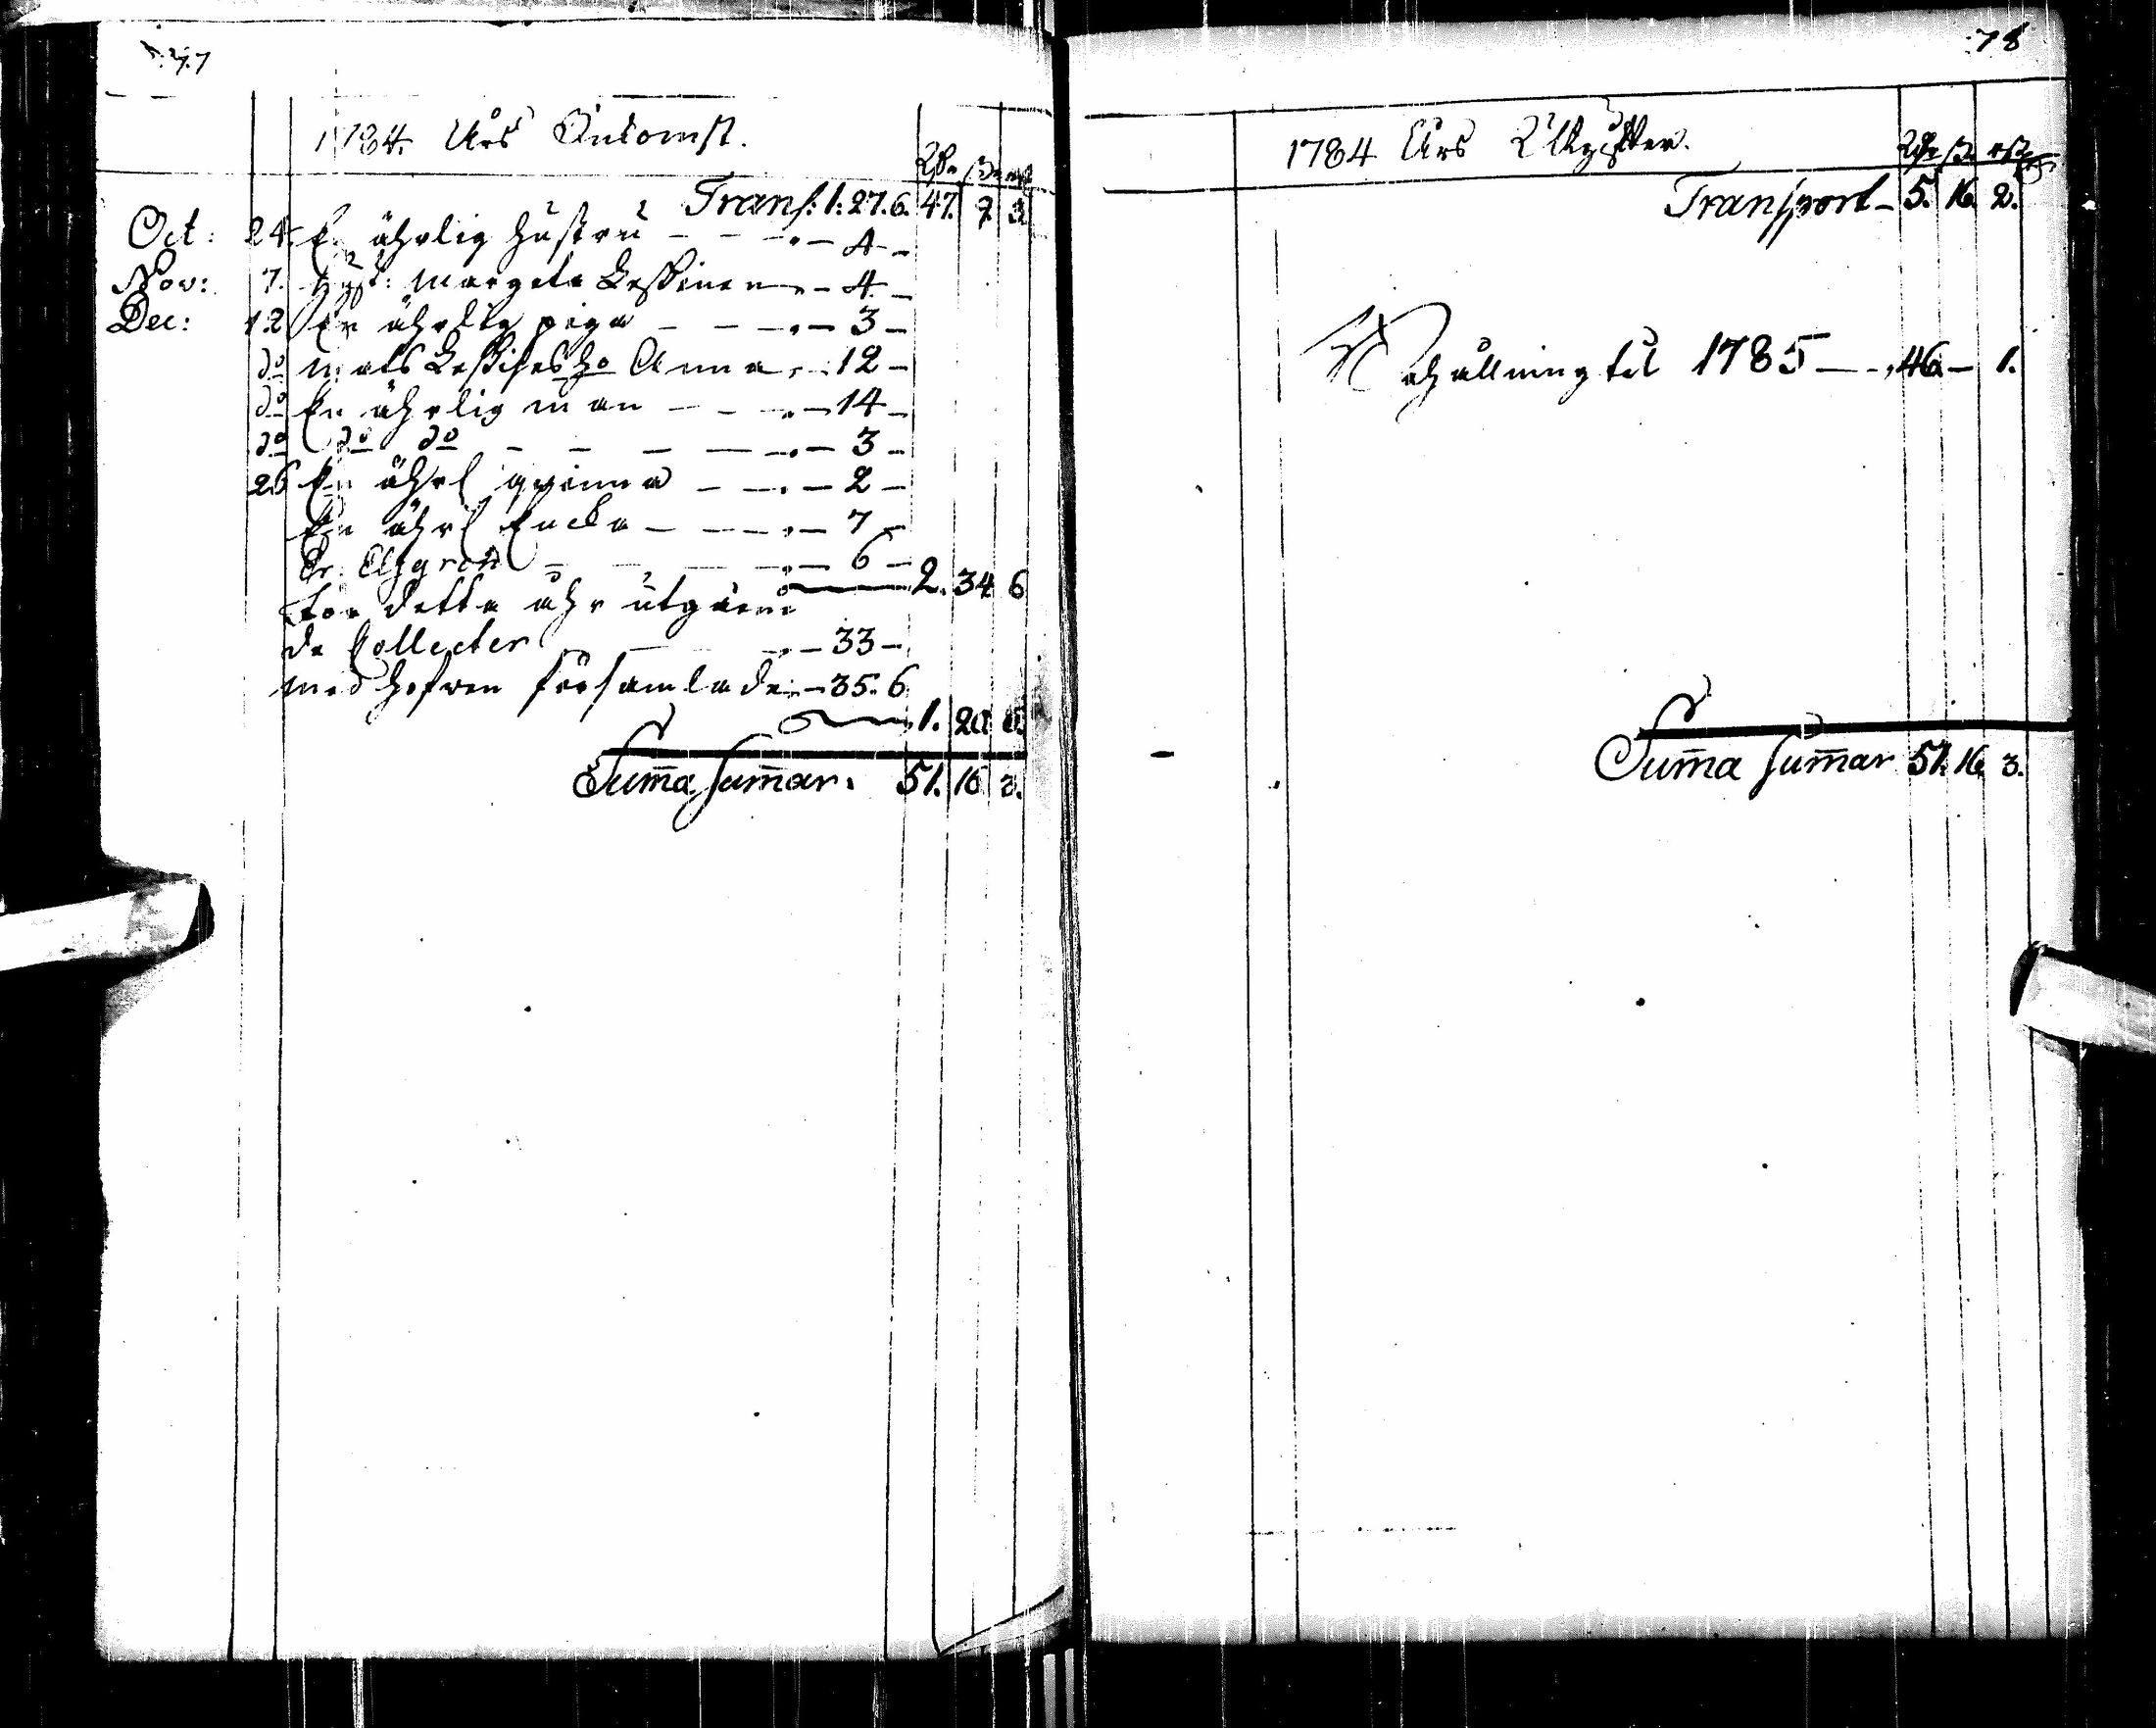 77
1784. Års Inkomst.
Rdr sk. rst
Transp: 1: 27. 6. 47. 7 3
Oct: 24. En ährlig hustru - - - 4 -
Nov: 7. Hust: Margeta Leskinen - 4 -
Dec: 12 En ährlig piga - - - 3 -
do Mats Leskises ho Anna - 12 -
do En ährlig man - - - 14 -
do do do - - - - - 3 -
26 En ährl qvinna - - - 2 -
En ährl Encka - - - 7 -
Er. Elfgren - - - 6 -
2. 34 6
För detta åhr utgåen
de Collecter - - 33 -
med hofven församlade - 35. 6
1. 20. 6.
Suma sumar. 51. 16 3.
78
1784 Års Utgifter.
Rdr sk. rst
Transport - 5. 16. 2.
Behållning til 1785 - - 46. - 1.
Suma sumar 51. 16. 3.